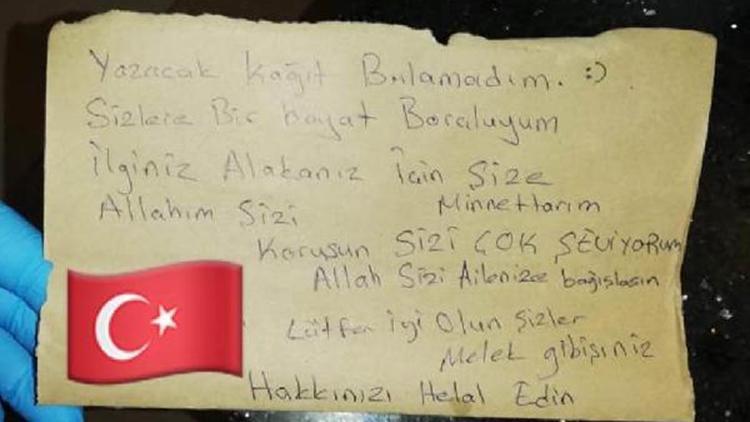 Yazacak Kağıt Bulamadım. :)
Sizlere Bir hayat Borcluyum
İlginiz Alakanız İçin Size
Minnettarım
Allahım Sizi
Korusun Sizi ÇOK SEViYORUM
Allah Sizi Ailenize bağışlasın
Lütfen iyi Olun Sizler
Melek gibisiniz
Hakkınızı Helal Edin